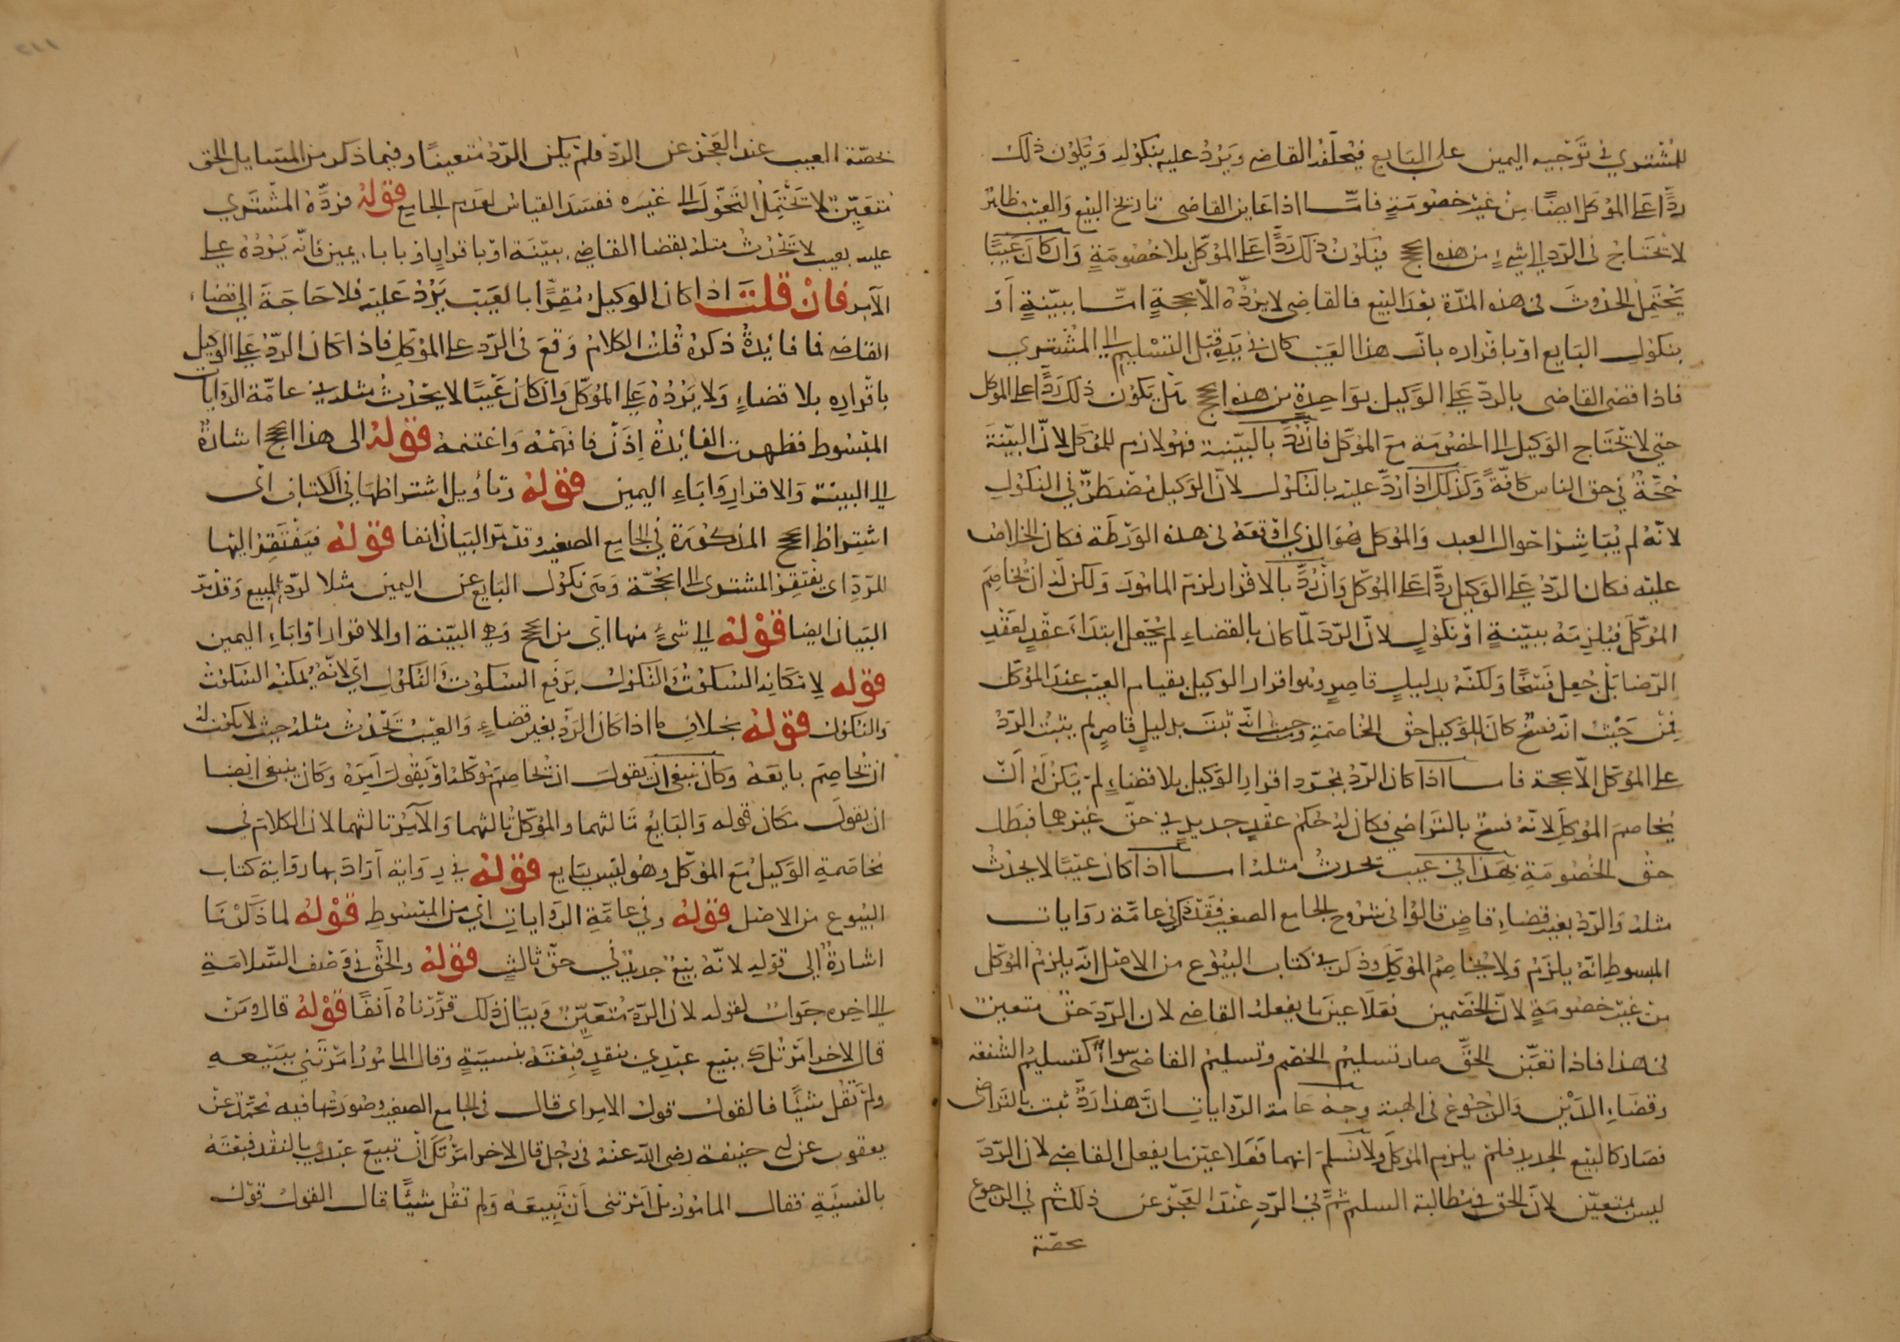 للمشتري في توجيه اليمين على البايع فيحلفه القاضي ويرد عليه بنكوله ويكون ذلك
ردًّا على الموكل ايضًا من غير خصومةٍ فامّا اذا عاين القاضي تاريخ البيع والعيب ظاهرٌ
لا يحتاج في الرد الى شيءٍ من هذه الحجج فيكون ذلك ردًّا على الموكّل بلا خصومةٍ وان كان عيبًا
يحتمل الحدوث في هذه المدّة بعد البيع فالقاضي لا يردّه الا بحجةٍ امّا ببيّنةٍ او
بنكول البايع او باقراره بانّ هذا العيب كان في يده قبل التسليم الى المشتري
فاذا قضى القاضي بالردّ على الوكيل بواحدةٍ من هذه الحجج هل يكون ذلك ردًّا على الموكل
حتى لا يحتاج الوكيل الى الخصومة مع الموكّل فان رُدَّ بالبيّنة فهو لازم للموكل لانّ البيّنة
حجّةٌ في حق الناس كافّةً وكذلك اذا ردّ عليه بالنكول لانّ الوكيل مضطرٌّ في النكول
لانّه لم يباشر احوال العبد والموكل هو الذي اوقعه في هذه الورطة فكان الخلاص
عليه فكان الردّ على الوكيل ردًّا على الموكّل وان رُدَّ بالاقرار لزم المامور ولكن له ان يخاصم
الموكّل فيلزمه ببيّنةٍ او نكولٍ لانّ الردّ لمّا كان بالقضاءِ لم يجعل ابتداءَ عقدٍ لفقد
الرضا بل جعل فسخًا ولكنّه بدليلٍ قاصرٍ وهو اقرار الوكيل بقيام العيب عند الموكّل
فمن حيث انّه فسخٌ كان للوكيل حق المخاصمة وحيث انّه ثبت بدليلٍ قاصرٍ لم يثبت الردّ
على الموكّل الا بحجة فامـا اذا كان الردّ بمجرّد اقرار الوكيل بلا قضاءٍ لم يكن له انْ
يخاصم الموكّل لانّه فسخٌ بالتراضي فكان له حكم عقدٍ جديدٍ في حقّ غيرهما فبطل
حقّ الخصومة فهذا في عيب يحدث مثله امـا اذا كان عيبًا لا يحدث
مثله والردّ بغير قضاءِ قاضٍ قالوا في شروح الجامع الصغير فقد ذكر في عامّة روايات
المبسوط انّه يلزمه ولا يخاصم الموكّل وذكر في كتاب البيوع من الاصل انّه يلزم الموكّل
من غير خصومةٍ لانّ الخصمين فعلا عين ما يفعله القاضي لان الردّ حقّ متعين
في هذا فاذا تعيّن الحقّ صار تسليم الخصم وتسليم القاضي سواءً كتسليم الشفعة
وقضاءِ الدّين والرجوع في الهبة وجه عامة الروايات انّ هذا ردٌّ ثبت بالتراضي
فصار كالبيع الجديد فلم يلزم الموكل ولا نسلم انهما فعلا عين ما يفعل القاضي لان الردّ
ليس بمتعيّن لانّ الحق في مطالبة السليم ثمّ في الردّ عند العجز عن ذلك ثم في الرجوع
بحصّة
بحصّة العيب عند العجز عن الردّ فلم يكن الردّ متعينًا وفيما ذكر من المسايل الحق
متعيّن لا يحتمل التحوّل الى غيره ففسد القياس لعدم الجامع قوله فردّه المشتري
عليه بعيب لا يحدث مثله بقضا القاضي ببيّنة او باقرارٍ او باباء يمين فانّه يردّه على
الآمر فان قلت اذا كان الوكيل مُقِرًّا بالعيب يردّ عليه فلا حاجة الى قضاء
القاضي فما فايدةُ ذكره قلت الكلام وقع في الردّ على الموكّل فاذا كان الردّ على الوكيل
باقراره بلا قضاءٍ ولا يردّه على الموكّل وان كان عيبًا لا يحدث مثله في عامّة الروايات
المبسوط فظهرت الفايدة اذن فافهمه واغتنمه قوله الى هذا الحجج اشارةٌ
الى البينة والاقرار واباءِ اليمين قوله وتأويل اشتراطها في الكتاب اي
اشتراط الحجج المذكورة في الجامع الصغير وقد مرّ البيان انفا قوله فيفتقر اليها
للردّ اي يفتقر المشتري الى الحجّة وهي نكول البايع عن اليمين مثلا لردّ المبيع وقد مرّ
البيان ايضا قوله الى شيءٍ منها اي من الحجج وهي البيّنة او الاقرار او اباءِ اليمين
قوله لامكانه السكوتُ والنكولُ برفع السكوت والنكول اي لانّه يمكنه السكوت
والنكول قوله بخلاف ما اذا كان الردّ بغير قضاءٍ والعيب يحدث مثله حيث لا يكون له
ان يخاصم بايعه وكان ينبغي ان يقول ان يخاصم موكّله او يقول آمره وكان ينبغي ايضا
ان يقول مكان قوله والبايع ثالثهما والموكّل ثالثهما والآمر ثالثهما لان الكلام في
مخاصمة الوكيل مع الموكّل وهو ليس ببايع قوله في رواية اراد بها رواية كتاب
البيوع من الاصل قوله وفي عامّة الروايات اي من المبسوط قوله لما ذكرنا
اشارةٌ الى قوله لانّه بيع جديد في حقّ ثالثٍ قوله والحقّ في وصف السّلامة
الى اخره جواب لقوله لان الردّ متعيّن وبيان ذلك قرّرناه آنفًا قوله قال ومن
قال لاخر امرتك ببيع عبدي بنقدٍ فبعته بنسيةٍ وقال المامور امرتني ببيعه
ولم تقل شيئًا فالقول قول الامر اي قال في الجامع الصغير وصورتها فيه محمّد عن
يعقوب عن ابي حنيفة رضي الله عنه في رجل قال لاخر امرتك ان تبيع عبدي بالنقد فبعته
بالنسيّة فقال المامور بل امرتني ان ابيعه ولم تقل شيئًا قال القول قول